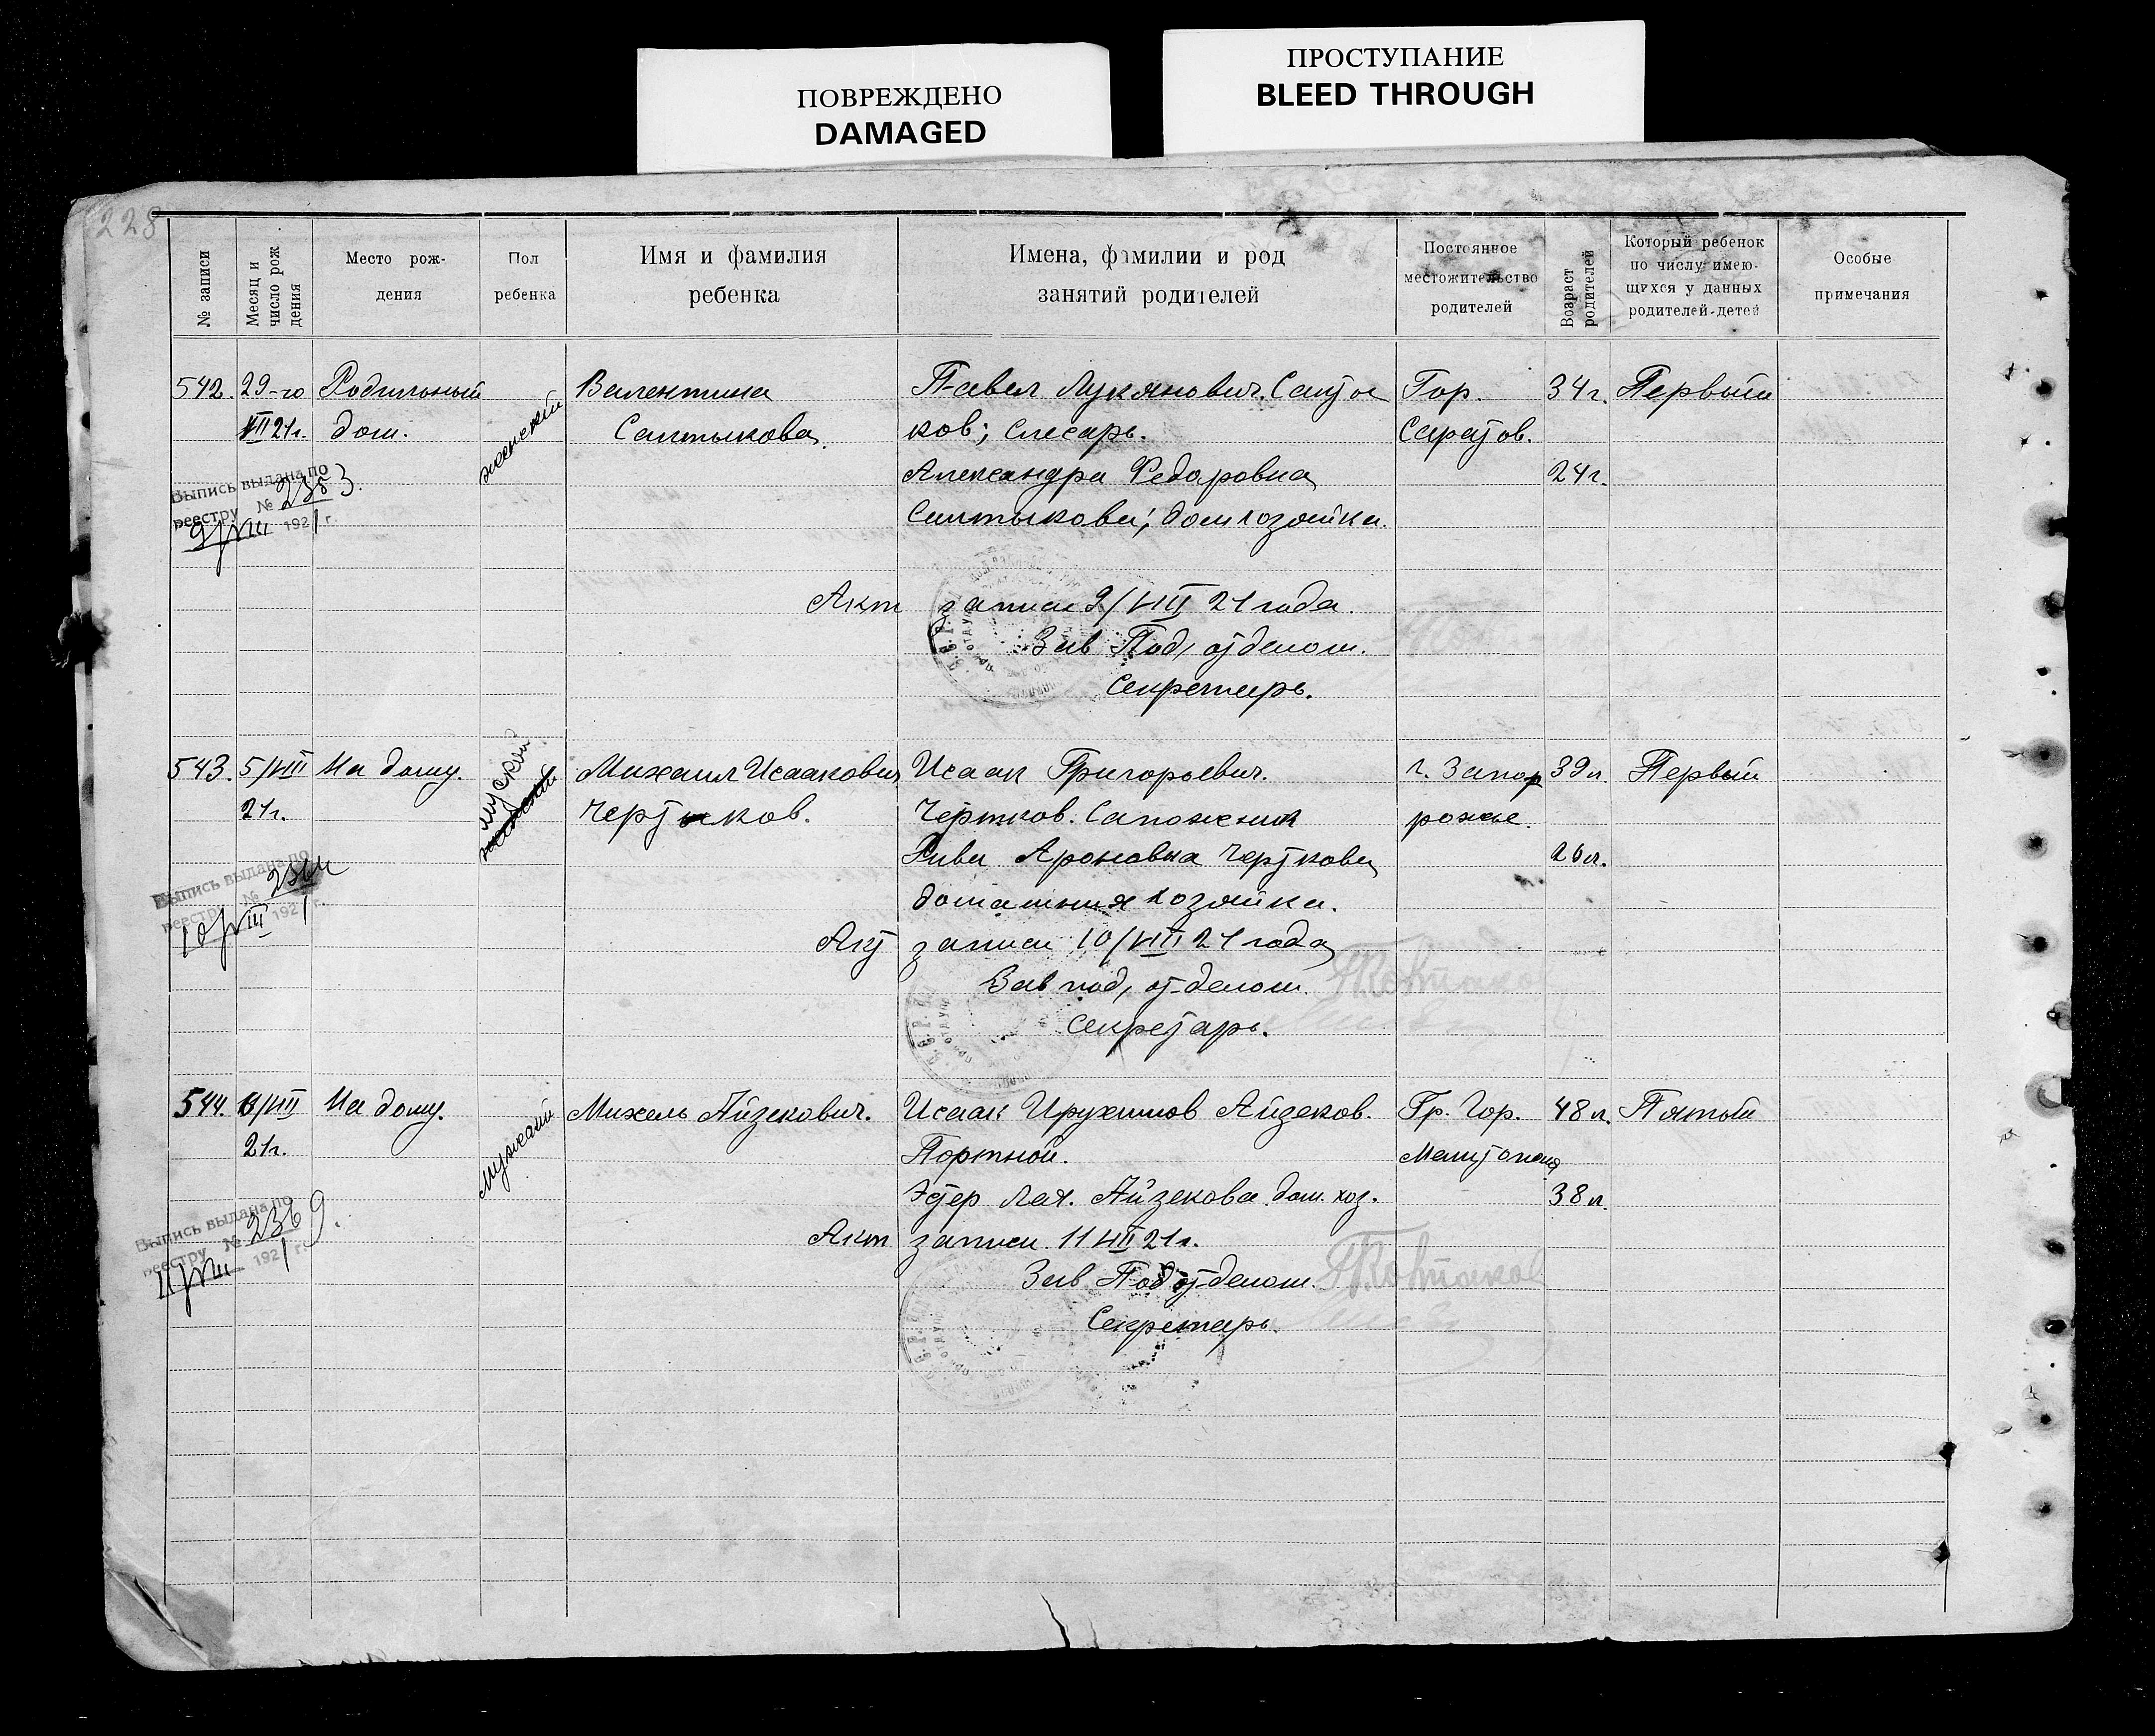 ПОВРЕЖДЕНО
DAMAGED
ПРОСТУПАНИЕ
BLEED THROUGH
228
№ записи
Месяц и число рождения
Место рож-
дения
Пол
ребенка
Имя и фамилия
ребенка
Имена, фамилии и род
занятий родителей
Постоянное
местожительство
родителей
Возраст
родителей
Который ребенок
по числу имею-
щихся у данных
родителей-детей
Особые
примечания
542. 29-го Родильный женский Валентина Павел Лукянович Салты Гор. 34 г. Первый
VII 21 г. дом. Салтыкова ков; Слесарь. Саратов.
Александра Федоровна 24 г.
Салтыкова; домхозяйка.
Выпись выдана по
реестру № 2353.
9/VIII 1921 г.
Акт записи 9/VIII 21 года.
Зав Под, отделом.
Секретарь.
543. 5/VIII На дому. муской Михаил Исаакович Исаак Григорьевич. г. Запор 39 л. Первый
21 г. Чертков. Чертков. Сапожник рожье.
Рива Ароновна Черткова 26 л.
домашния хозяйка.
Выпись выдана по
реестру № 2364
10/VIII 1921 г.
Акт записи 10/VIII 21 года
Зав под, отделом.
Секретарь.
544. /VIII На дому. Мужской Михель Айзекович. Исаак Ирухимов Айзеков. Гр. Гор. 48 л. Пятый
21 г. Портной. Мелитополя
Эстер Лея. Айзекова дом. хоз. 38 л.
Выпись выдана по
реестру № 2369.
11/VIII 1921 г.
Акт записи 11 VIII 21 г.
Зав Подотделом.
Секретарь.